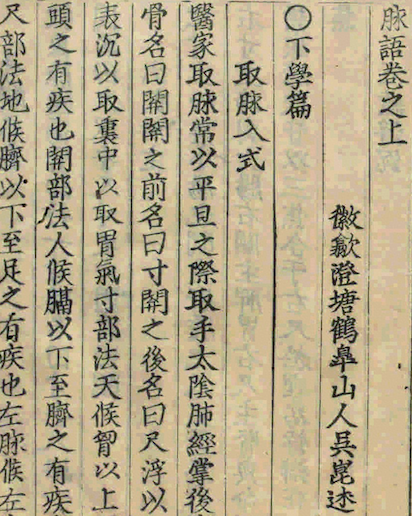 脉語卷之上
徽歙澄塘鶴皐山人吳崑述
○下學篇
取脉入式
醫家取脉常以平旦之際取手太陰肺經掌後
骨名曰關關之前名曰寸關之後名曰尺浮以
表沉以取裏中以取胃氣寸部法天候胷以上
頭之有疾也關部法人候膈以下至臍之有疾
尺部法地候臍以下至足之有疾也左脉候左